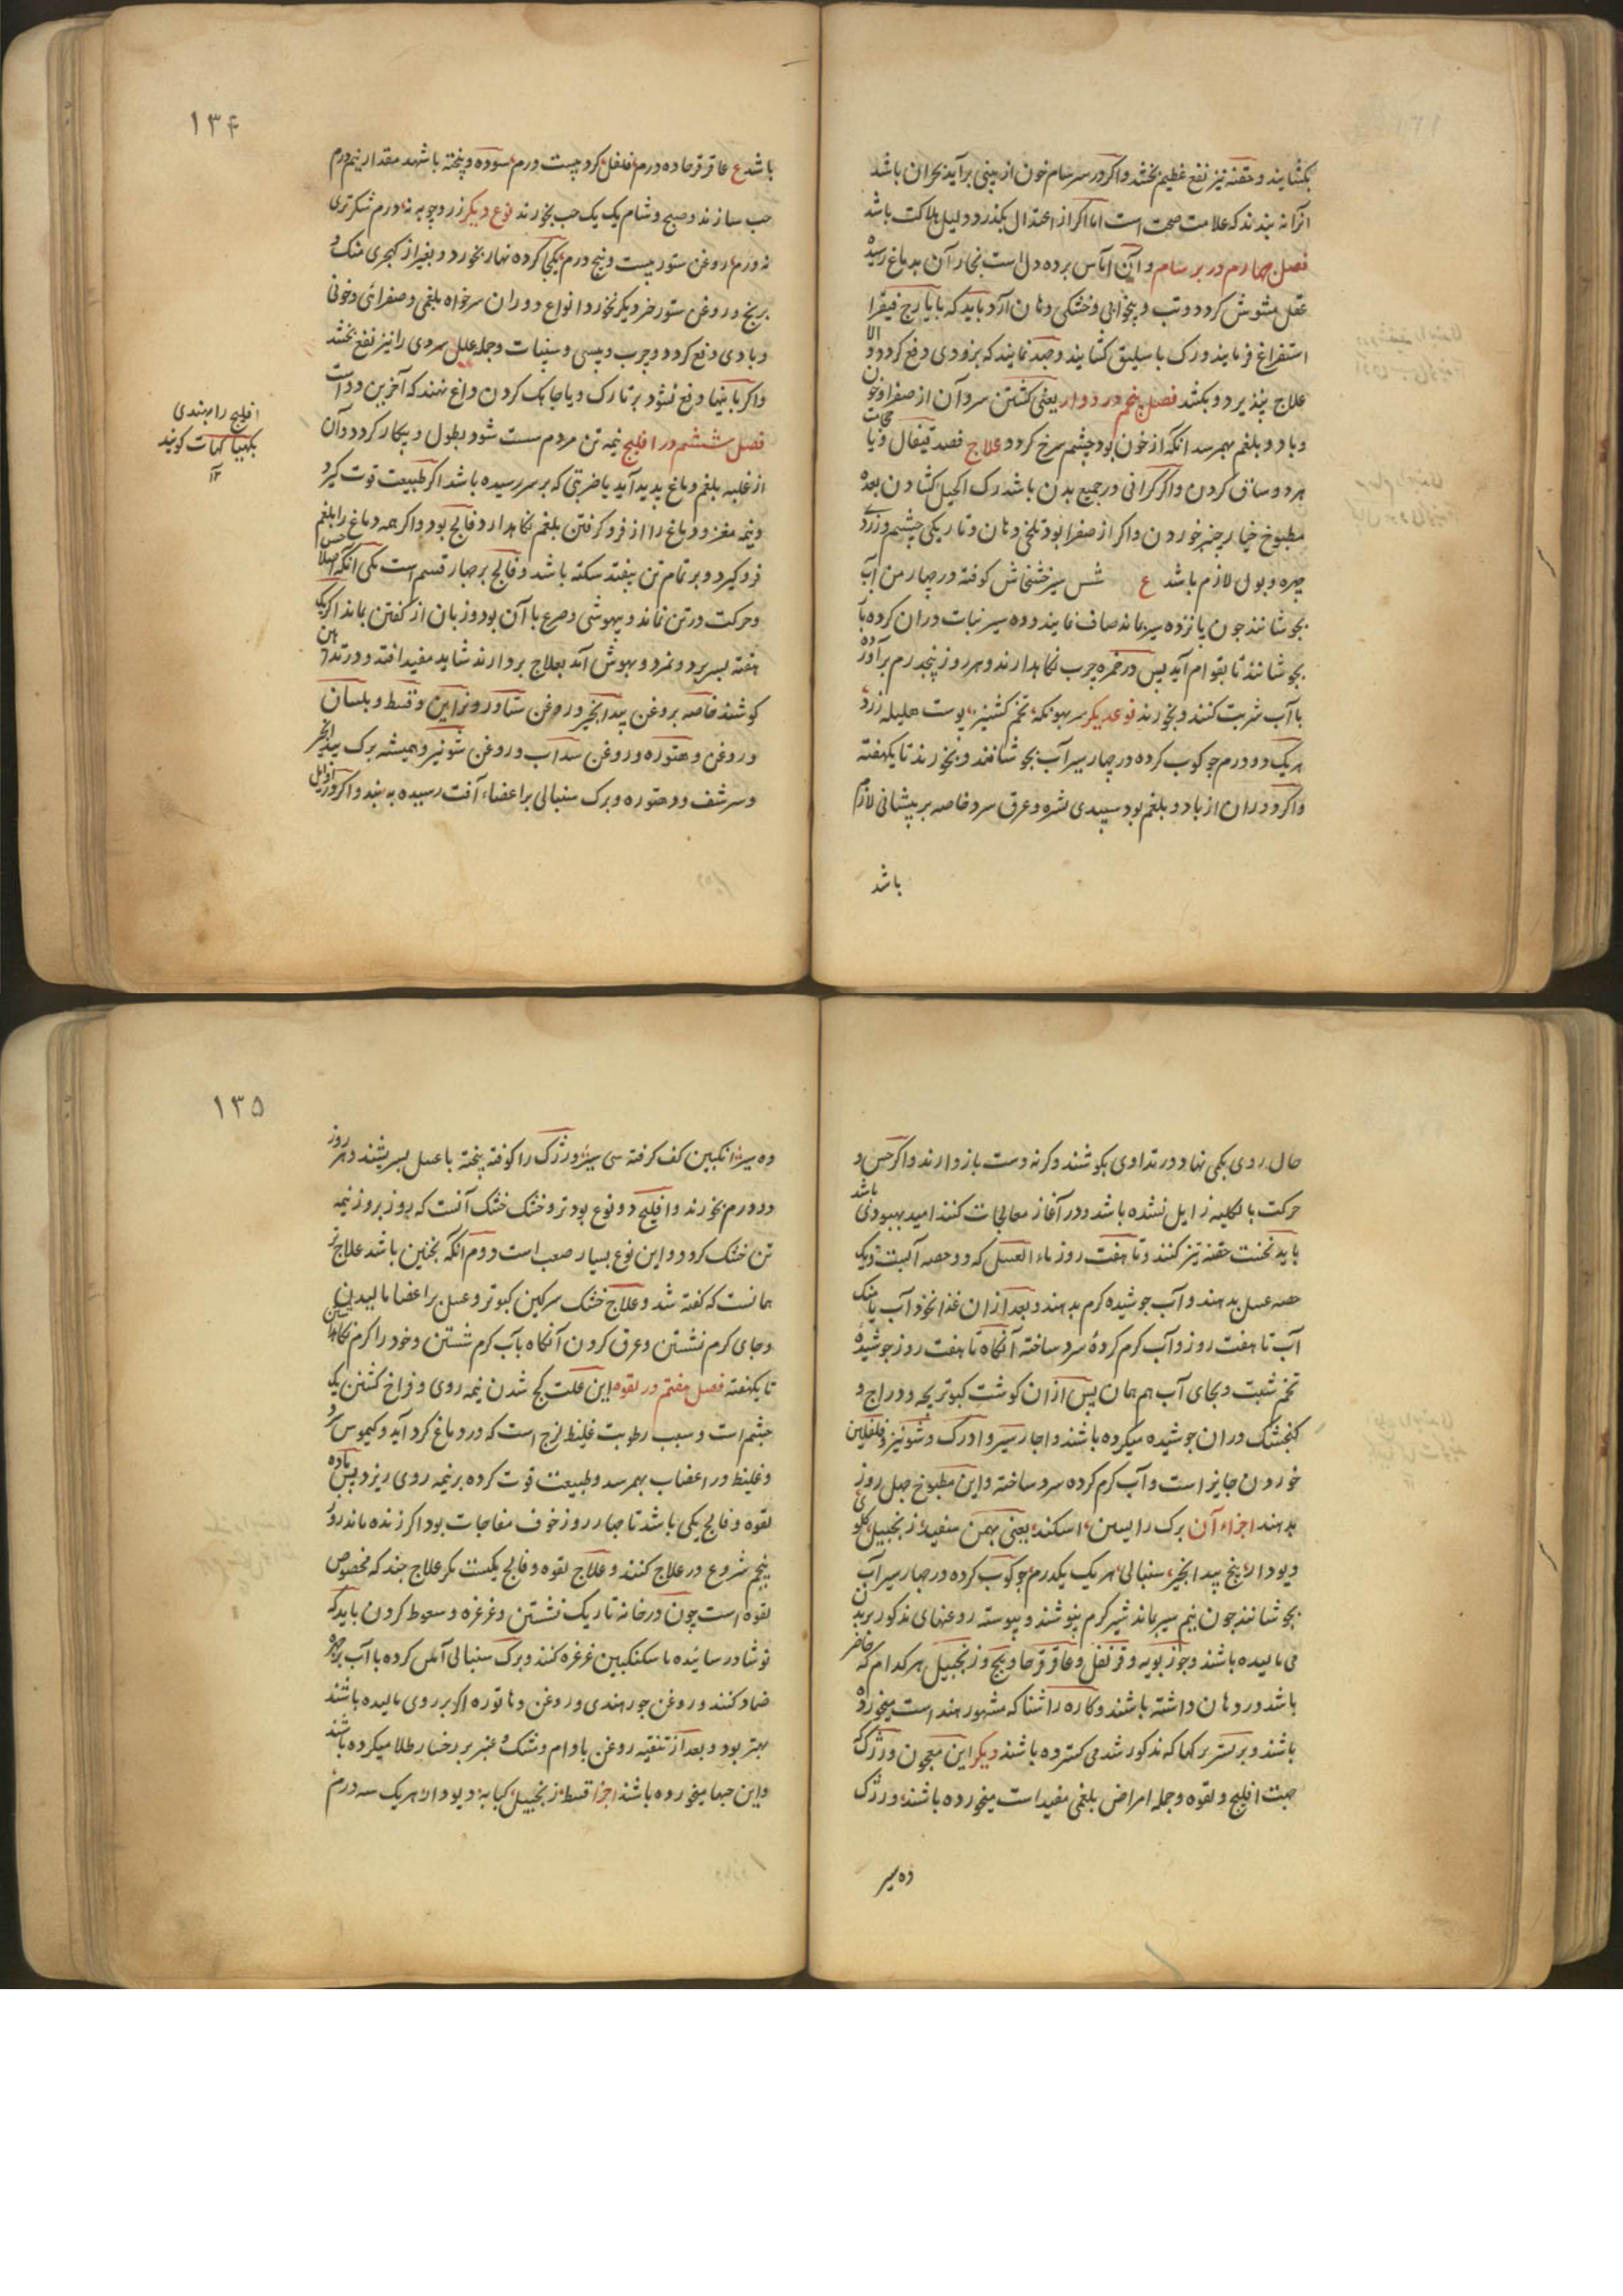 بکشایند و حقنه تیز نفع عظیم بخشد و اگر در سرسام خون از بینی برآید بحران باشد
آنرا نه بندند که علامت صحت است اما اگر از اعتدال بگذرد دلیل هلاکت باشد
فصل چهارم در برسام و این آماس پرده دل است بخار آن بدماغ رسیده
عقل مشوش گردد و تب و بیخوابی و خشکی دهان آرد باید که بایارج فیقرا
استفراغ فرمایند و رگ باسلیق کشایند و جهد نمایند که بزودی دفع گردد و الا
علاج نپذیرد و بکشد فصل پنجم در دوار یعنی گشتن سر و آن از صفرا و خون
و باد و بلغم بهمرسد آنکه از خون بود چشم سرخ گردد علاج فصد قیفال و یا حجامت
هر دو ساق کردن و اگر گرانی در جمیع بدن باشد رگ اکحل کشادن بعده
مطبوخ خیارچنبر خوردن و اگر از صفرا بود تلخی دهان و تاریکی چشم و زردی
چهره و بول لازم باشد ع شش سیر خشخاش کوفته در چهار من آب
بجوشانند چون پانزده سیر بماند صاف نمایند و ده سیر نبات دران کرده باز
بجوشانند تا بقوام آید پس در خمره چرب نگاهدارند و هر روز پنجدرم برآورده
با آب شربت کنند و بخورند نوعدیگر سربهونکه تخم کشنیز پوست هلیله زرد
هریک دو درم جوکوب کرده در چهار سیر آب بجوشانند و بخورند تا یکهفته
و اگر دوران از باد و بلغم بود سپیدی بشره و عرق سرد خاصه بر پیشانی لازم
باشد
۱۳۴
باشد ع عاقرقرحا ده درم فلفل گرد بیست درم سوده و پخته با شهد مقدار نیم درم
حب سازند و صبح و شام یک یک حب بخورند نوع دیگر زردچوبه نه درم شکرتری
نه درم روغن ستور بیست و پنج درم یکجا کرده نهار بخورد و بغیر از کهچری منگ و
برنج و روغن ستور چیز دیگر نخورد انواع دوران سر خواه بلغمی و صفرائی و خونی
و بادی دفع گردد و جرب و پیسی و سنپات و جمله علل سردی را نیز نفع بخشد
و اگر باینها دفع نشود بر تارک و یا جابک کردن داغ نهند که آخرین دوا است
فصل ششم در افلیج نیمه تن مردم سست شود بطول و بیکار گردد و آن
از غلبه بلغم دماغ پدید آید یا ضربتی که بر سر رسیده باشد اگر طبیعت قوت گیرد
و نیمه مغز و دماغ را از فرو گرفتن بلغم نگاهدارد فالج بود و اگر همه دماغ را بلغم
فرو گیرد و بر تمام تن بیفتد سکته باشد و فالج بر چهار قسم است یکی آنکه اصلا حس
و حرکت در تن نماند و بیهوشی و صرع با آن بود و زبان از گفتن بماند اگر یک
هفته بسر برد و نمرد و بهوش آید بعلاج پردازند شاید مفید افتد و در تدهین
کوشند خاصه بروغن بیدانجیر و روغن ستاور و نراین و قسط و بلسان
و روغن دهتوره و روغن سداب و روغن شونیز و همیشه برگ بیدانجیر
و سرشف و دهتوره و برگ سنبالی بر اعضاء آفت رسیده به بندد و اگر در اوایل
افلیج را بهندی
پکهیاگهات گویند
۱۲
حال روی بکجی نهاد در تداوی بکوشند و گرنه دست بازدارند و اگر حس و
حرکت بالکلیه زایل نشده باشد و در آغاز معالجات کنند امید بهبودی باشد
باید نخست حقنه تیز کنند و تا هفت روز ماء العسل که دو حصه آبست و یک
حصه عسل بدهند و آب جوشیده گرم بدهند و بعد ازان غذا نخودآب یا منگ
آب تا هفت روز و آب گرم کرده سرد ساخته آنگاه تا هفت روز جوشیده
تخم شبت و بجای آب هم همان پس ازان گوشت کبوتر بچه و دراج و
کنجشک دران جوشیده میکرده باشند و اچار سیر و ادرک و شونیز و فلفلین
خوردن جایز است و آب گرم کرده سرد ساخته و این مطبوخ چهل روز
بدهند اجزاء آن برگ رایسن اسکند یعنی بهمن سفید زنجبیل گلوی
دیودار بیخ بیدانجیر سنبالی هریک یکدرم جوکوب کرده در چهار سیر آب
بجوشانند چون نیم سیر بماند شیرگرم بنوشند و پیوسته روغنهای مذکور بر بدن
می مالیده باشند و جوزبویه و قرنفل و عاقرقرحا و بچ و زنجبیل هرکدام که حاضر
باشد در دهان داشته باشند و کاره راشنا که مشهور هند است میخورده
باشند و بر بستر برگها که مذکور شد می گسترده باشند دیگر این معجون ورژک
جهت افلیج و لقوه و جمله امراض بلغمی مفید است میخورده باشند ورژک
ده سیر
۱۳۵
ده سیر انگبین کف گرفته سی سیر ورژک را کوفته پخته با عسل بسریشند و هر روز
دو درم بخورند و افلیج دو نوع بود تر و خشک خشک آنست که روز بروز نیمه
تن خشک گردد و این نوع بسیار صعب است دوم آنکه نچنین باشد علاج تر
همانست که گفته شد و علاج خشک سرگین کبوتر و عسل بر اعضا مالیدن
و جای گرم نشستن و عرق کردن آنگاه بآب گرم شستن و خود را گرم نگاهداشتن
تا یکهفته فصل هفتم در لقوه این علت کج شدن نیمه روی و فراخ گشتن یک
چشم است و سبب رطوبت غلیظ لزج است که در دماغ گرد آید و کیموس سرد
و غلیظ در اعضاب بهمرسد و طبیعت قوت کرده بر نیمه روی ریزد پس ماده
لقوه و فالج یکی باشد تا چهار روز خوف مفاجات بود اگر زنده ماند روز
پنجم شروع در علاج کنند و علاج لقوه و فالج یکیست مگر علاج چند که مخصوص
لقوه است چون در خانه تاریک نشستن و غرغره و سعوط کردن باید که
نوشادر سائیده با سکنکبین غرغره کنند و برگ سنبالی آملس کرده با آب بر چهره
ضماد کنند و روغن جور هندی و روغن دهاتوره اگر بر روی مالیده باشند
بهتر بود و بعد از تنقیه روغن بادام و مشک و عنبر بر رخسار طلا میکرده باشند
و این حبها میخورده باشند اجزا قسط زنجبیل کبابه دیودار هریک سه درم